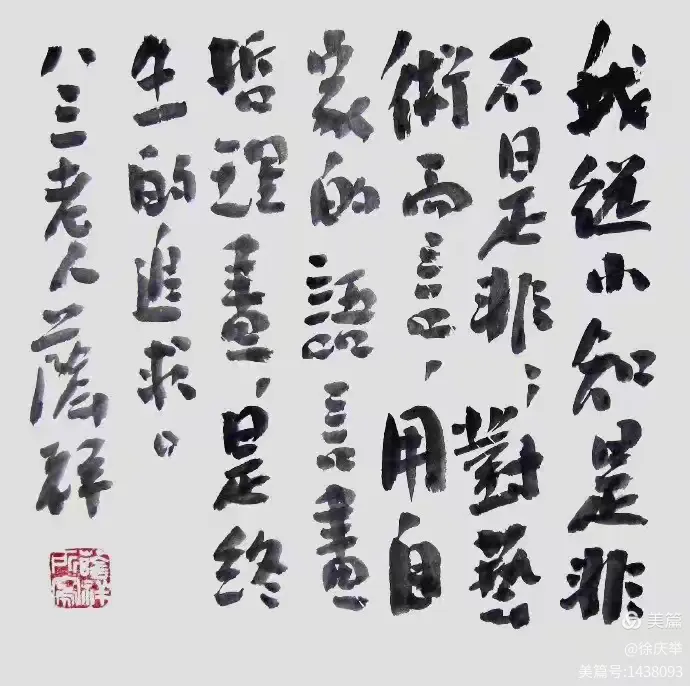 我從小知是非
不是非；對藝
術而言，用自
家的語言畫
哲理畫，是終
生的追求。
八三老人蔭祥
美篇
@徐庆举
美篇号:1438093